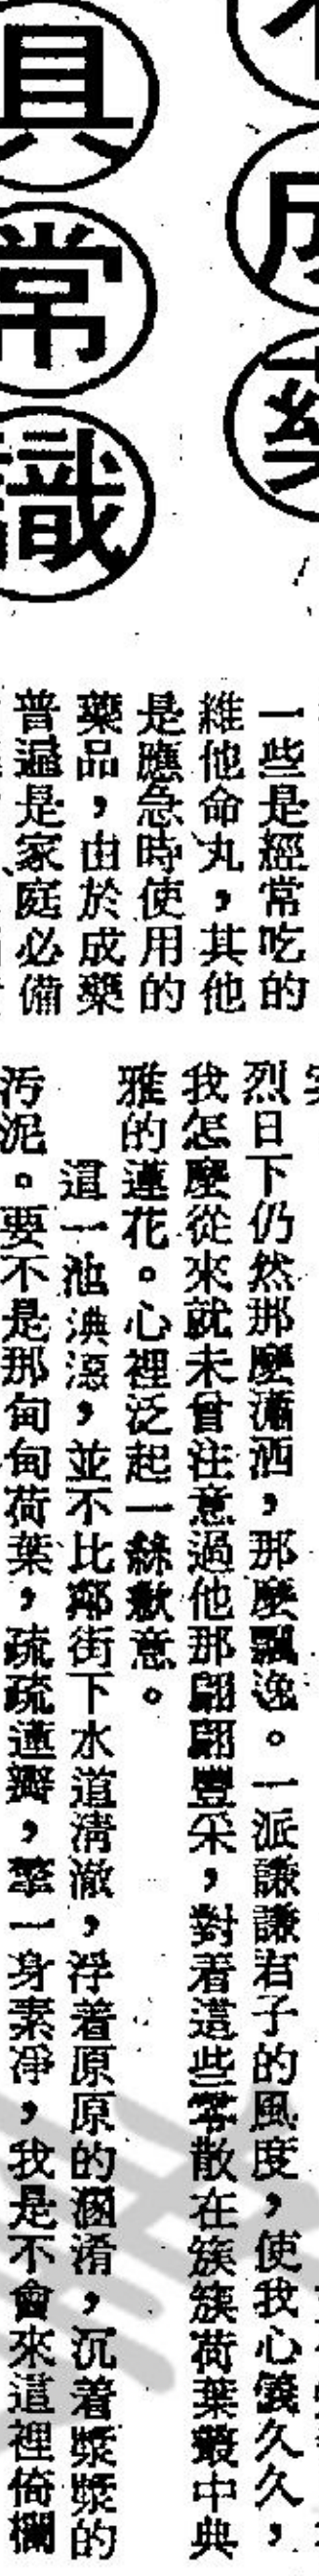 成藥
具常識
一些是經常吃的
維他命丸，其他
是應急時使用的
藥品，由於成藥
普遍是家庭必備
烈日下仍然那麼瀟洒，那麼飄逸。一派謙謙君子的風度，使我心儀久久，
我怎麼從來就未曾注意過他那翩翩豐采，對着這些零散在簇簇荷葉叢中典
雅的蓮花。心裡泛起一絲歉意。
這一池淟涊，並不比鄰街下水道清澈，浮着原原的溷淆，沉着漿漿的
污泥。要不是那甸甸荷葉，疏疏蓮瓣，擎一身素凈，我是不會來這裡倚欄